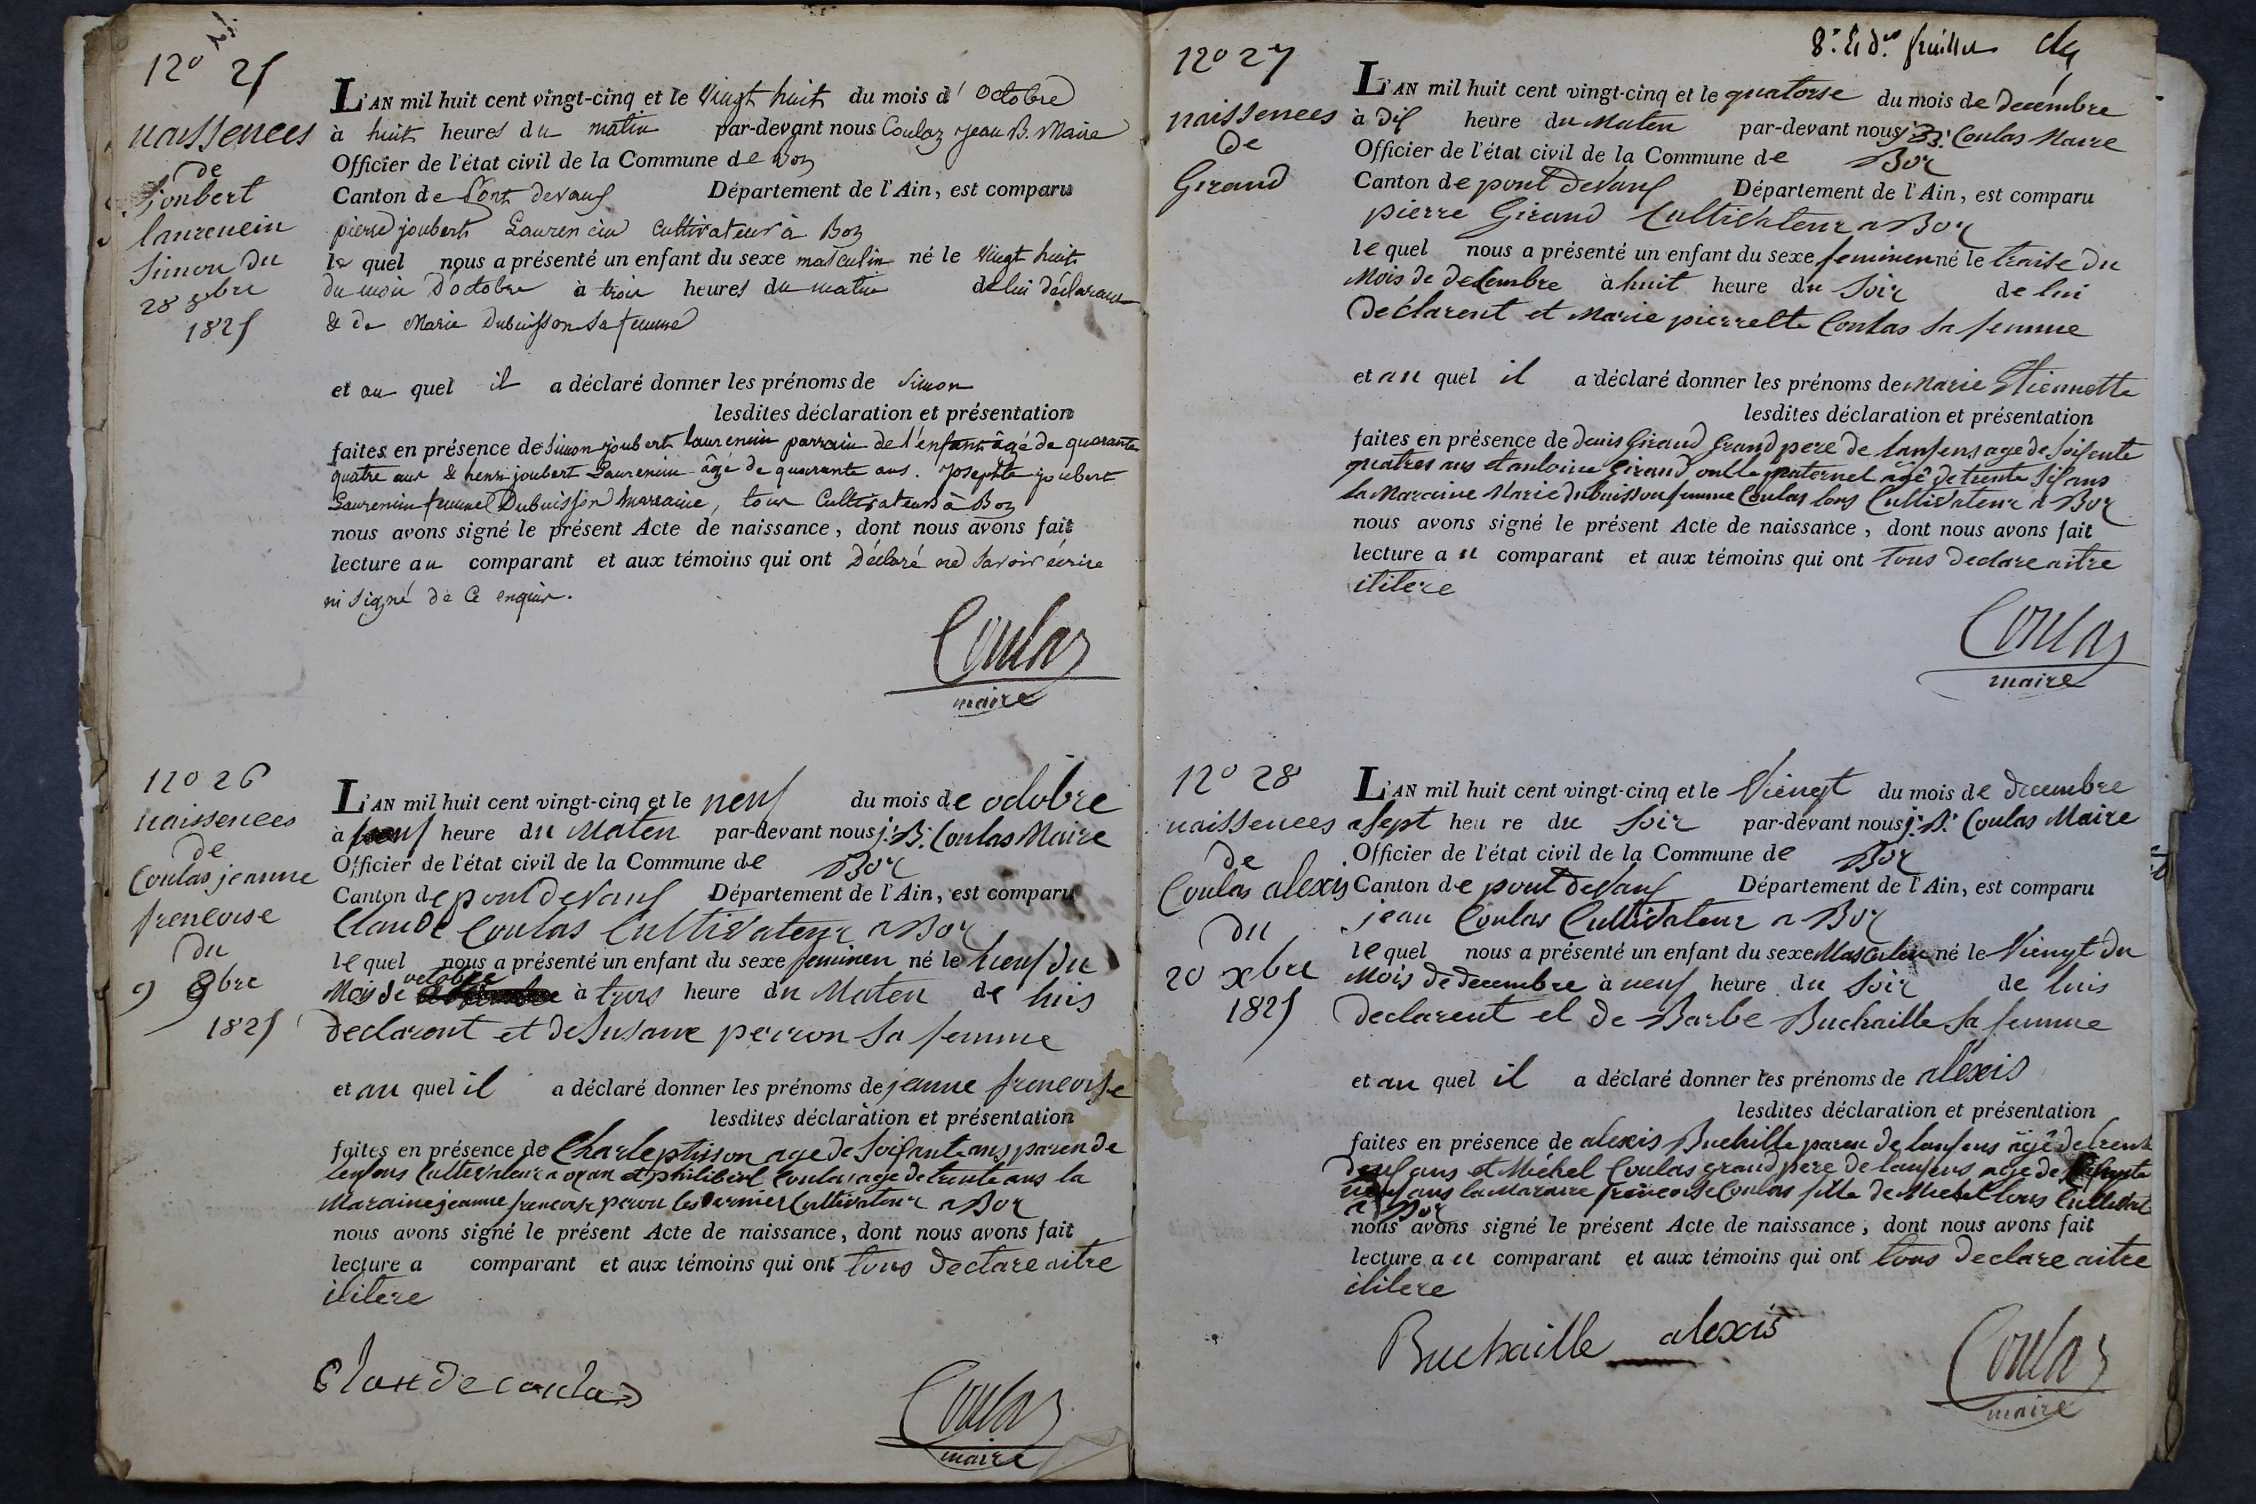 N° 25
naissences
de
Joubert
laurencin
Simon du
28 8bre
1825
L'AN mil huit cent vingt-cinq et le Vingt huit du mois d'Octobre
à huit heures du matin par-devant nous Coulaz Jean B. Maire
Officier de l'état civil de la Commune de Boz
Canton de Pont devaux Département de l'Ain, est comparu
pierre joubert Laurencin cultivateur à Boz
le quel nous a présenté un enfant du sexe masculin né le Vingt huit
du mois d'octobre à trois heures du matin de lui déclarant
& de Marie Dubuisson sa femme
et au quel il a déclaré donner les prénoms de Simon
lesdites déclaration et présentation
faites en présence de Simon joubert laurencin parrain de l'enfant âgé de quarante
quatre ans & henri joubert Laurencin âgé de quarante ans. Josephte joubert
Laurencin femme Dubuisson marraine, tous Cultivateurs à Boz
nous avons signé le présent Acte de naissance, dont nous avons fait
lecture au comparant et aux témoins qui ont Déclaré ne savoir écrire
ni signé de Ce enquis.
Coulaz
maire
N° 26
naissences
de
Coulas jeanne
frencoise
du
9 8bre
1825
L'AN mil huit cent vingt-cinq et le neuf du mois de octobre
à neuf heure du Maten par-devant nous j. B. Coulas Maire
Officier de l'état civil de la Commune de Boz
Canton de pont deVaux Département de l'Ain, est comparu
Claude Coulas Cultivateur a Boz
le quel nous a présenté un enfant du sexe feminen né le neuf du
Mois de octobre à trois heure du Maten de luis
declarent et de Susane perron sa femme
et au quel il a déclaré donner les prénoms de jeanne frencoise
lesdites déclaration et présentation
faites en présence de Charle age de Soisante ans paren de
lenfens Cultevateur a ozan et philibert Coulas age de trente ans la
Maraine jeanne frencoise peron les dernier Cultivateur a Boz
nous avons signé le présent Acte de naissance, dont nous avons fait
lecture a comparant et aux témoins qui ont tous declare aitre
ilitere
Claude coulas
Coulaz
maire
8e & der feuillet
N° 27
naissences
de
Giraud
L'AN mil huit cent vingt-cinq et le quatorse du mois de decembre
à dix heure du Maten par-devant nous j. B. Coulas Maire
Officier de l'état civil de la Commune de Boz
Canton de pont deVaux Département de l'Ain, est comparu
pierre Giraud Cultivateur a Boz
le quel nous a présenté un enfant du sexe feminen né le traise du
Mois de decembre à huit heure du Soir de lui
declarent et Marie pierrette Coulas sa femme
et au quel il a déclaré donner les prénoms de Marie Etiennette
lesdites déclaration et présentation
faites en présence de denis Giraud Grand pere de lanfens age de Soisente
quatres ans et antoine Giraud oncle paternel agé de trente Sis ans
la Maraine Marie dubuisson femme Coulas tous Cultivateur a Boz
nous avons signé le présent Acte de naissance, dont nous avons fait
lecture a u comparant et aux témoins qui ont tous declare aitre
ilitere
Coulaz
maire
N° 28
naissences
de
Coulas alexis
du
20 xbre
1825
L'AN mil huit cent vingt-cinq et le Viengt du mois de decembre
a Sept heu re du Soir par-devant nous j. B. Coulas Maire
Officier de l'état civil de la Commune de Boz
Canton de pont deVaux Département de l'Ain, est comparu
jean Coulas Cultivateur a Boz
le quel nous a présenté un enfant du sexe Masculin né le Viengt du
Mois de decembre à neuf heure du Soir de luis
declarent et de Barbe Buchaille sa femme
et au quel il a déclaré donner les prénoms de alexis
lesdites déclaration et présentation
faites en présence de alexis Buchille paren de lanfens agé de trente
deux ans et Michel Coulas grand pere de lanfens age de Soisente
neuf ans la Maraine frencoise Coulas fille de Michel tous Cultivat
a Boz
nous avons signé le présent Acte de naissance, dont nous avons fait
lecture a u comparant et aux témoins qui ont tous declare aitre
ilitere
Buchaille alexis
Coulaz
maire